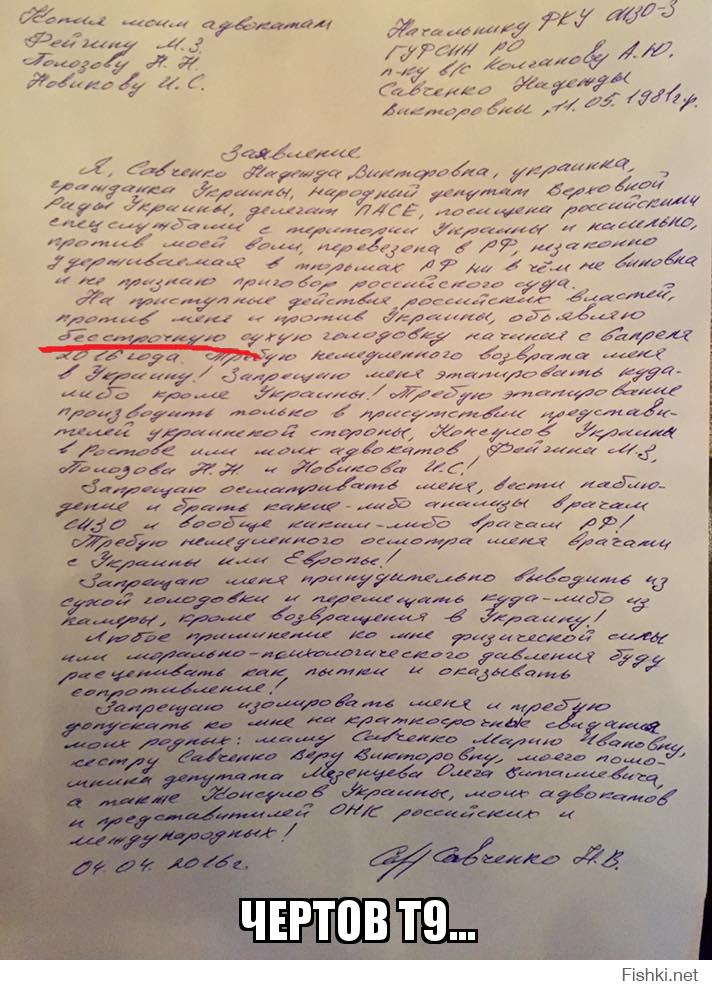 Копия моим адвокатам
Фейгину М.З.
Полозову Н.Н.
Новикову И.С.
Начальнику ФКУ СИЗО-3
ГУФСИН РО
п-ку в/с Колганову А.Ю.
Савченко Надежды
Викторовны, 11.05.1981г.р.
Заявление
Я, Савченко Надежда Викторовна, украинка,
гражданка Украины, Народный депутат Верховной
Рады Украины, делегат ПАСЕ, похищена российскими
спецслужбами с територии Украины и насильно,
против моей воли, перевезена в РФ, незаконно
удерживаемая в тюрьмах РФ ни в чём не виновна
и не признаю приговор российского суда.
На приступные действия российских властей,
против меня и против Украины, объявляю
бесстрочную сухую голодовку начиная с 6 апреля
2016 года. Требую немедленного возврата меня
в Украину! Запрещаю меня этапировать куда-
либо кроме Украины! Требую этапирование
производить только в присутствии представи-
телей украинской стороны, Консулов Украины
в Ростове или моих адвокатов Фейгина М.З,
Полозова Н.Н и Новикова И.С!
Запрещаю осматривать меня, вести наблю-
дение и брать какие-либо анализы врачам
СИЗО и вообще каким-либо врачам РФ!
Требую немедленного осмотра меня врачами
с Украины или Европы!
Запрещаю меня принудительно выводить из
сухой голодовки и перемещать куда-либо из
камеры, кроме возвращения в Украину!
Любое приминение ко мне физической силы
или морально-психологического давления буду
расценивать как пытки и оказывать
сопротивление!
Запрещаю изолировать меня и требую
допускать ко мне на краткосрочные свидания
моих родных: маму Савченко Марию Ивановну,
сестру Савченко Веру Викторовну, моего помо-
щника депутата Мезенцева Олега Виталиевича,
а также Консулов Украины, моих адвокатов
и представитилей ОНК российских и
международных!
04.04.2016г. Савченко Н.В.
ЧЕРТОВ Т9...
Fishki.net